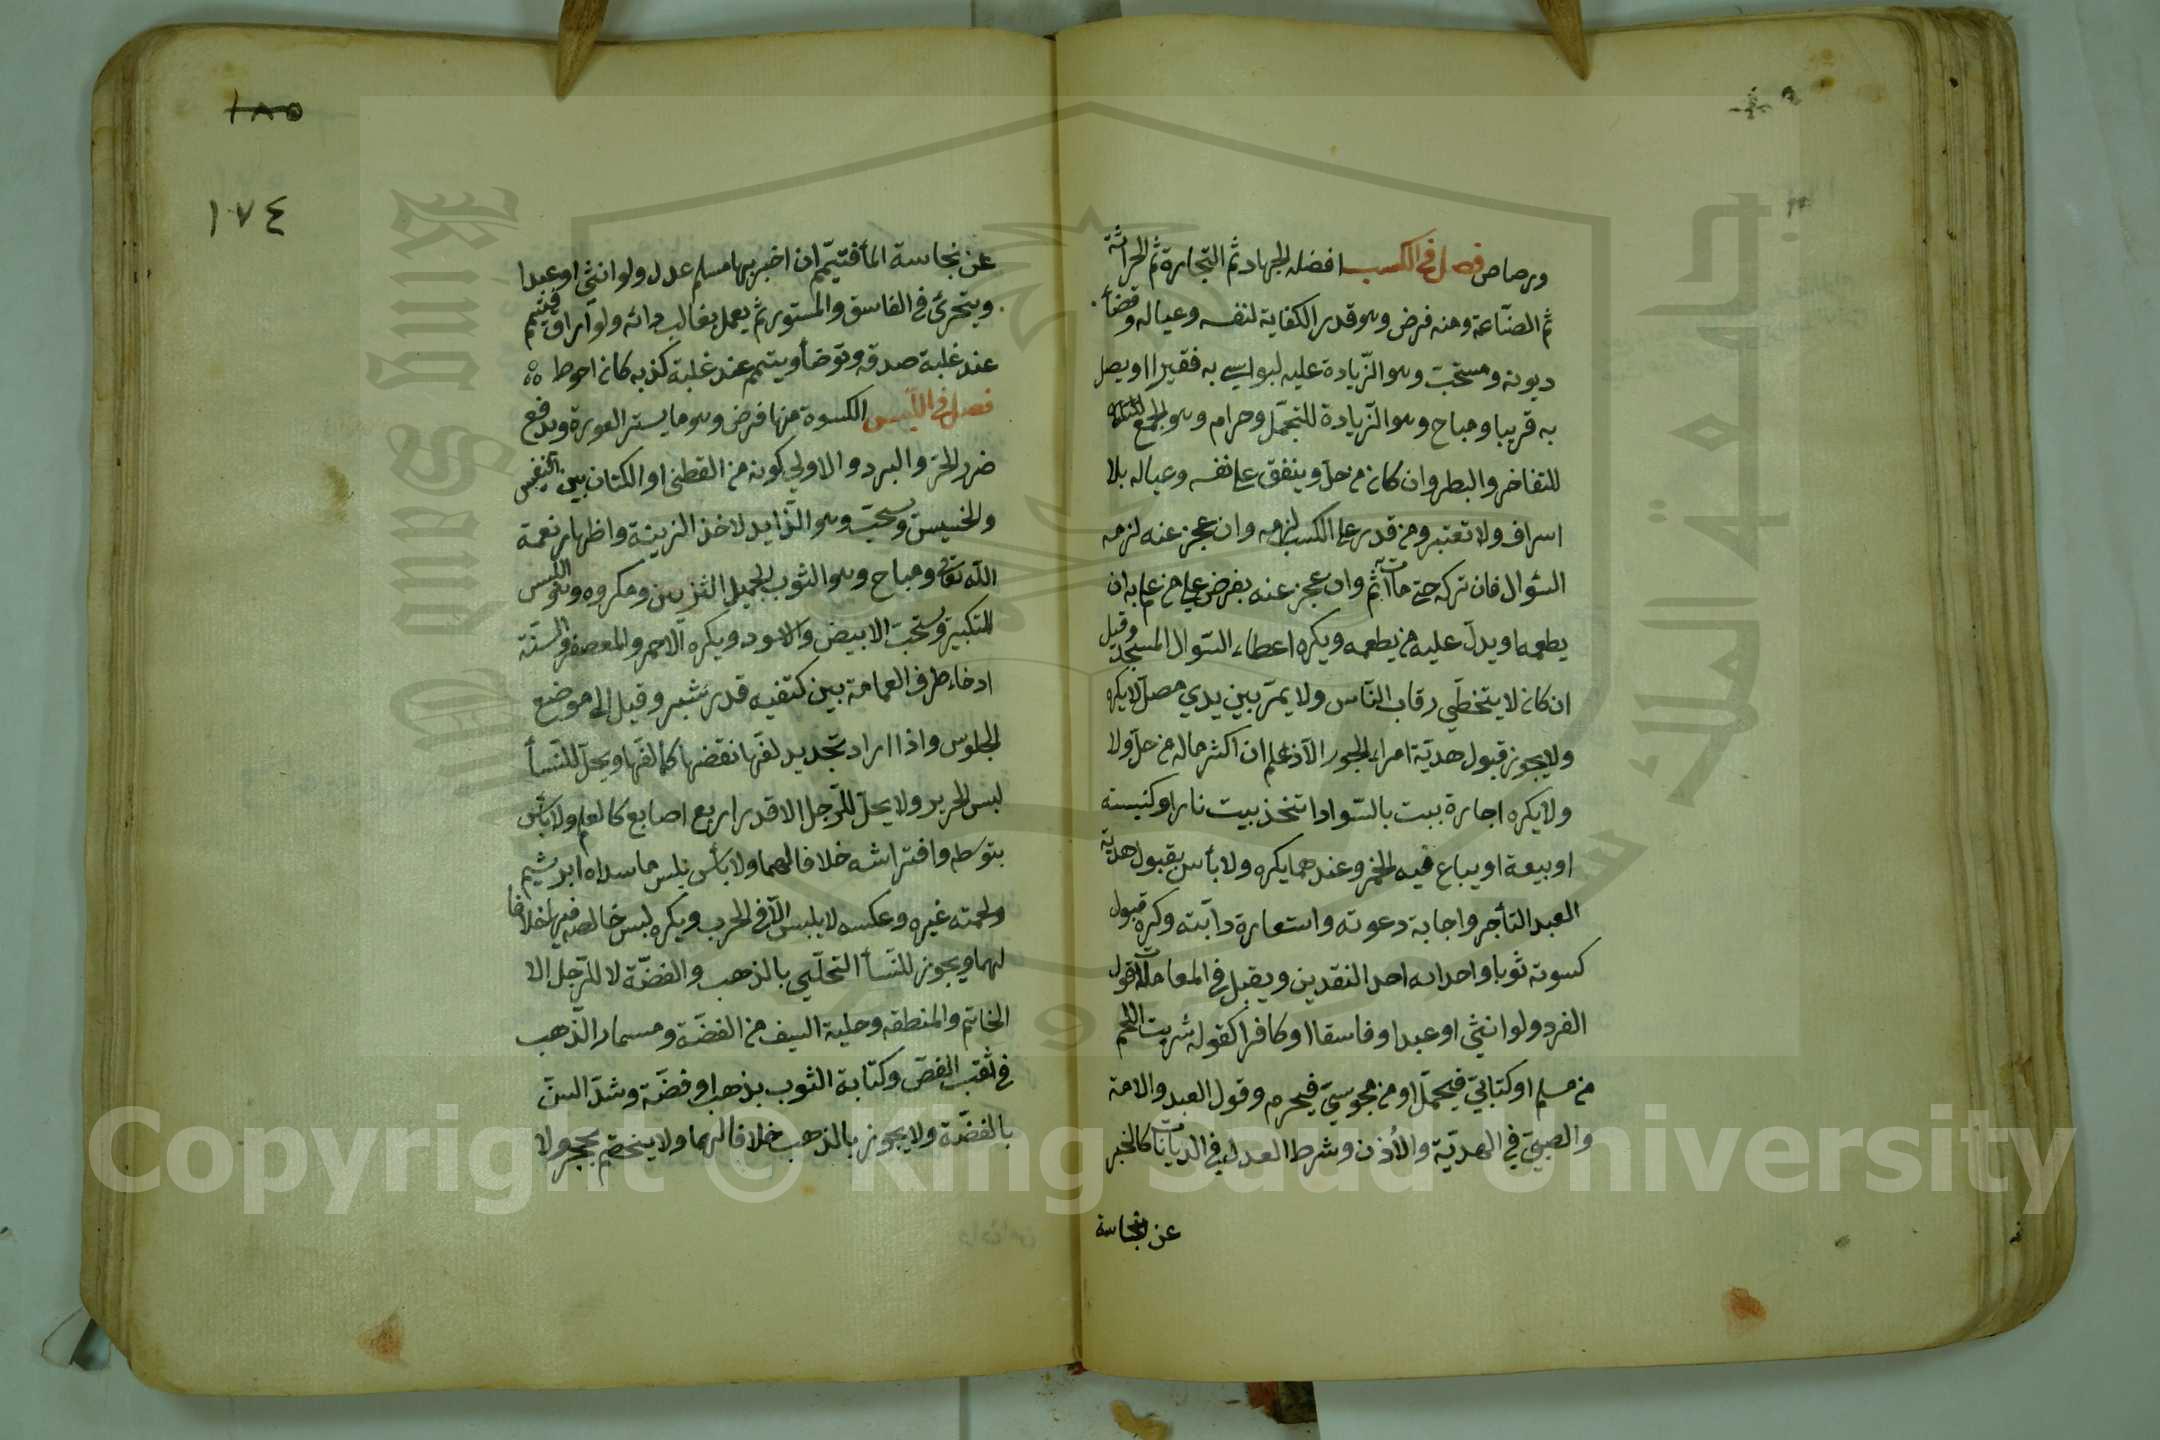 ورصاص فصل في الكسب افضله الجهاد ثم التجارة ثم الحراثة
ثم الصناعة ومنه فرض وهو قدر الكفاية لنفسه وعياله وقضأ
ديونه ومستحبّ وهو الزّيادة عليه ليواسي به فقيرا او يصل
به قريبا ومباح وهو الزّيادة للتجمّل وحرام وهو الجمع
للتفاخر والبطر وان كان من حلّ وينفق على نفسه وعياله بلا
اسراف ولا تقتير ومن قدر على الكسب لزمه وان عجز عنه لزمه
السؤال فان تركه حتى مات أثم وان عجز عنه يفرض على من علم به ان
يطعمه او يدلّ عليه من يطعمه ويكره اعطاء السّوال المسجد وقيل
ان كان لا يتخطّي رقاب النّاس ولا يمرّ بين يدي مصلّ لا يكره
ولا يجوز قبول هديّة امراء الجور الّا اذ علم ان اكثر ماله من حلّ ولا
ولا يكره اجارة بيت بالسّواد اتتخذ بيت نار او كنيسته
او بيعة او يباع فيه الخمر وعندهما يكره ولا بأس بقبول هديّة
العبد التأجر واجابة دعوته واستعارة دابّته وكره قبول
كسوته ثوبا واحدائه احد النقدين ويقبل في المعاملات قول
الفرد ولو انثي او عبدا وفاسقا او كافرا كقوله شريت اللحم
من مسلم او كتابيّ فيحلّ او من مجوسيّ فيحرم وقول العبد والامة
والصبيّ في الهديّة والأذن وشرط العدل في الديانات كالخبر
عن نجاسة
١٨٥
١٧٤
عن نجاسة المأ فتيمّم ان اخبر بها مسلم عدل ولو انثي او عبدا
ويتحرّي في الفاسق والمستور ثم يعمل بغالب رائه ولو اراق فتيمم
عند غلبة صدقه وتوضأ ويتمم عند غلبة كذبه كان احوط
فصل في اللّبس الكسوة منها فرض وهو ما يستر العورة ويدفع
ضرر الحرّ والبرد والاولي كونه من القطن او الكتان بين النفيس
والخسيس ويستحبّ وهو الزّايد لاخذ الزينة واظهار نعمة
الله تعالى ومباح وهو الثوب الجميل للتزيين ومكروه وهو اللبس
للتكبر ويستحبّ الابيض والاسود ويكره الاحمر والمعصفر والسنّة
ارخاء طرف العمامة بين كتفيه قدر شبر وقيل الى موضع
الجلوس واذا اراد تجديد لفّها نقضها كما لفّها ويحلّ للنّسأ
لبس الحرير ولا يحلّ للرّجل الا قدر اربع اصابع كالعلم ولا بأس
بتوسطه وافتراشه خلافا لهما ولا بأس بلبس ما سداه ابريشيم
ولحمته غيره وعكسه لا يلبس الّا في الحرب ويكره لبس خالصه فيها خلافا
لهما ويجوز للنّسأ التحلّي بالذهب والفضّة لا للرّجل الا
الخاتم والمنطقه وحلية السيف من الفضّة ومسمار الذّهب
في ثقب الفصّ وكتابة الثوب بذهب او فضّة وشدّ السنّ
بالفضّة ولا يجوز بالذهب خلافا لهما ولا يتختّم بحجر ولا
Copyright © King Saud University
جامعة الملك سعود
King Saud University